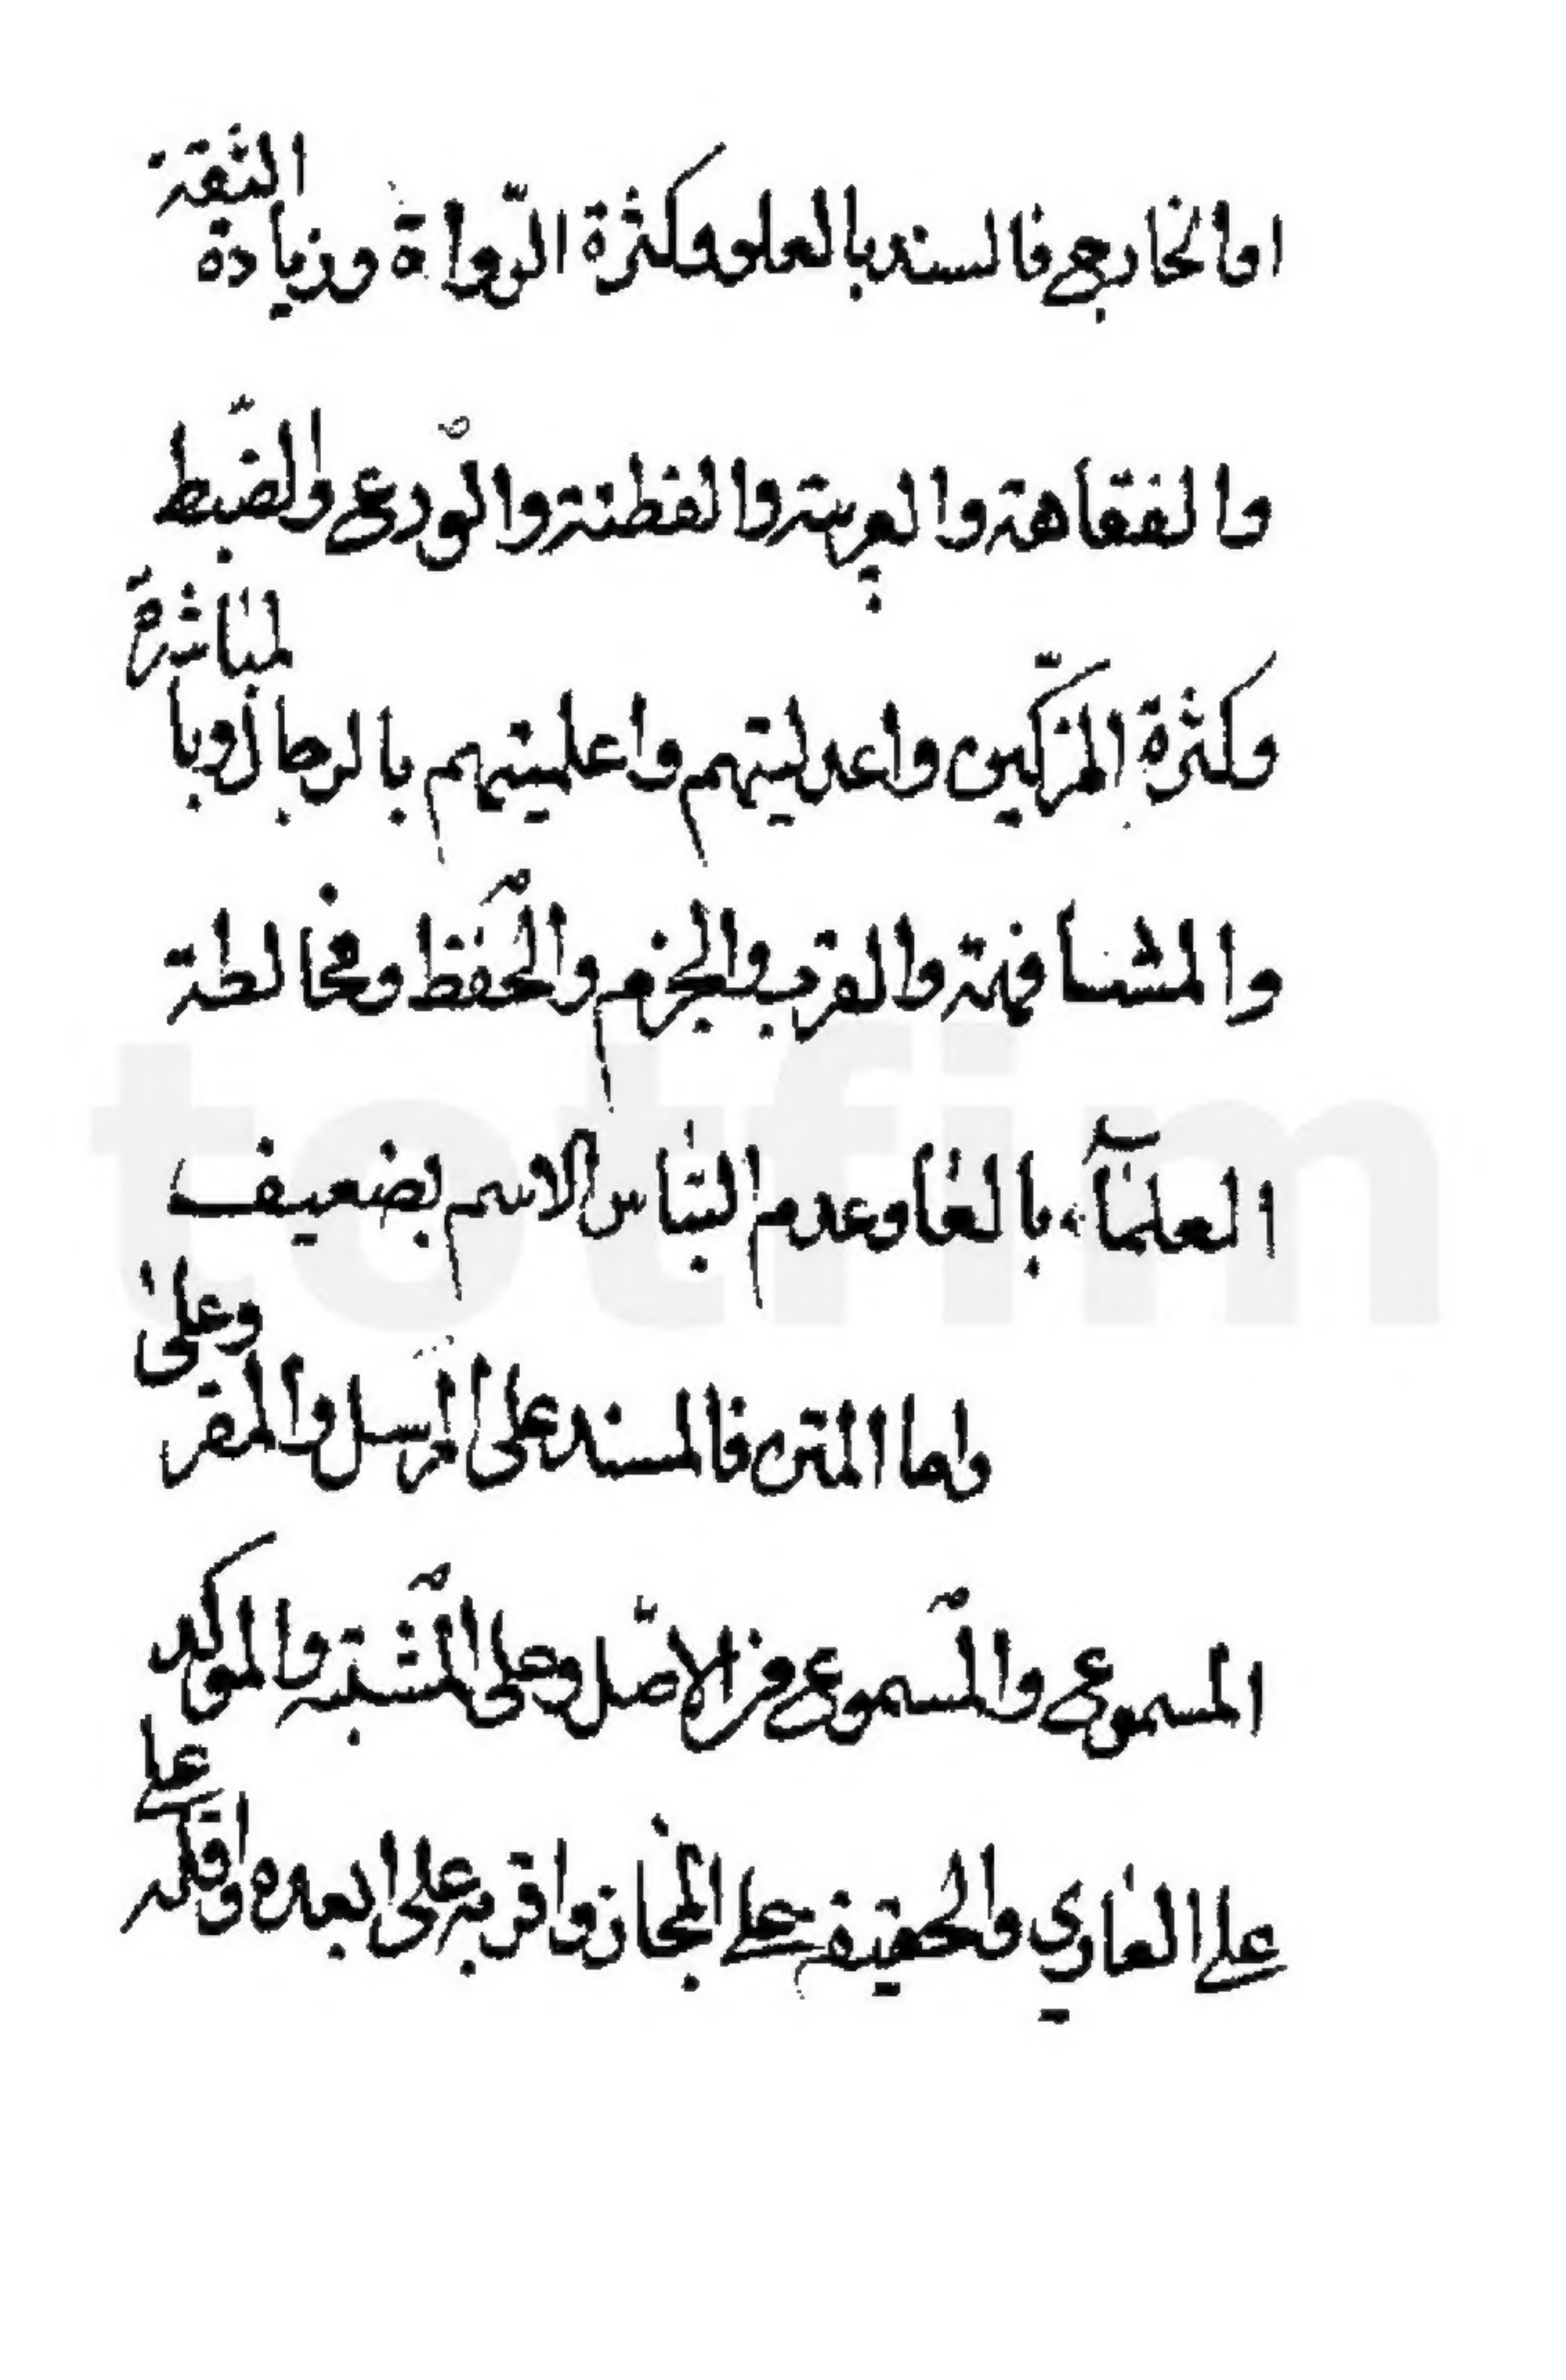 اما الخارجي فالسند بالعلو وكثرة الرّواة وزيادة الثقة
والفقاهة والعربية والفطنة والورع والضّبط
وكثرة المزكّين واعدليتهم واعلميتهم بالرجال وبالمباشرة
والمشافهة والقرب والجزم والحفظ ومخالطة
العلمآء بالعا وعدم التباس الاسم بضعيف
واما المتن فالمسند على المرسل والمقر وعلى
المسموع والمسموع من الاصل وعلى المشتبه والموكد
على العاري والحقيقة على المجاز واقربه على ابعده واقله على
totfim